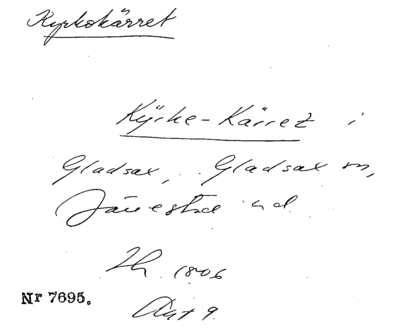 Kyrkokärret
Kÿrke-Kärret i
Gladsax, Gladsax sn,
Järrestad hd.
Lh. 1806
Akt 9.
Nr 7695.